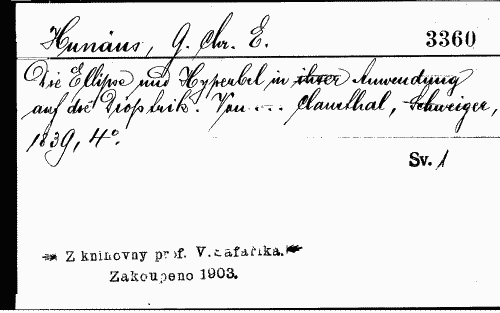 Hunäus, G. Chr. E. 3360
Die Ellipse und Hyperbel in ihrer Anwendung
auf die Dioptrik. Von ... Clausthal, Schweiger,
1839, 4°.
Sv. 1
Z knihovny prof. V. Šafaříka.
Zakoupeno 1903.